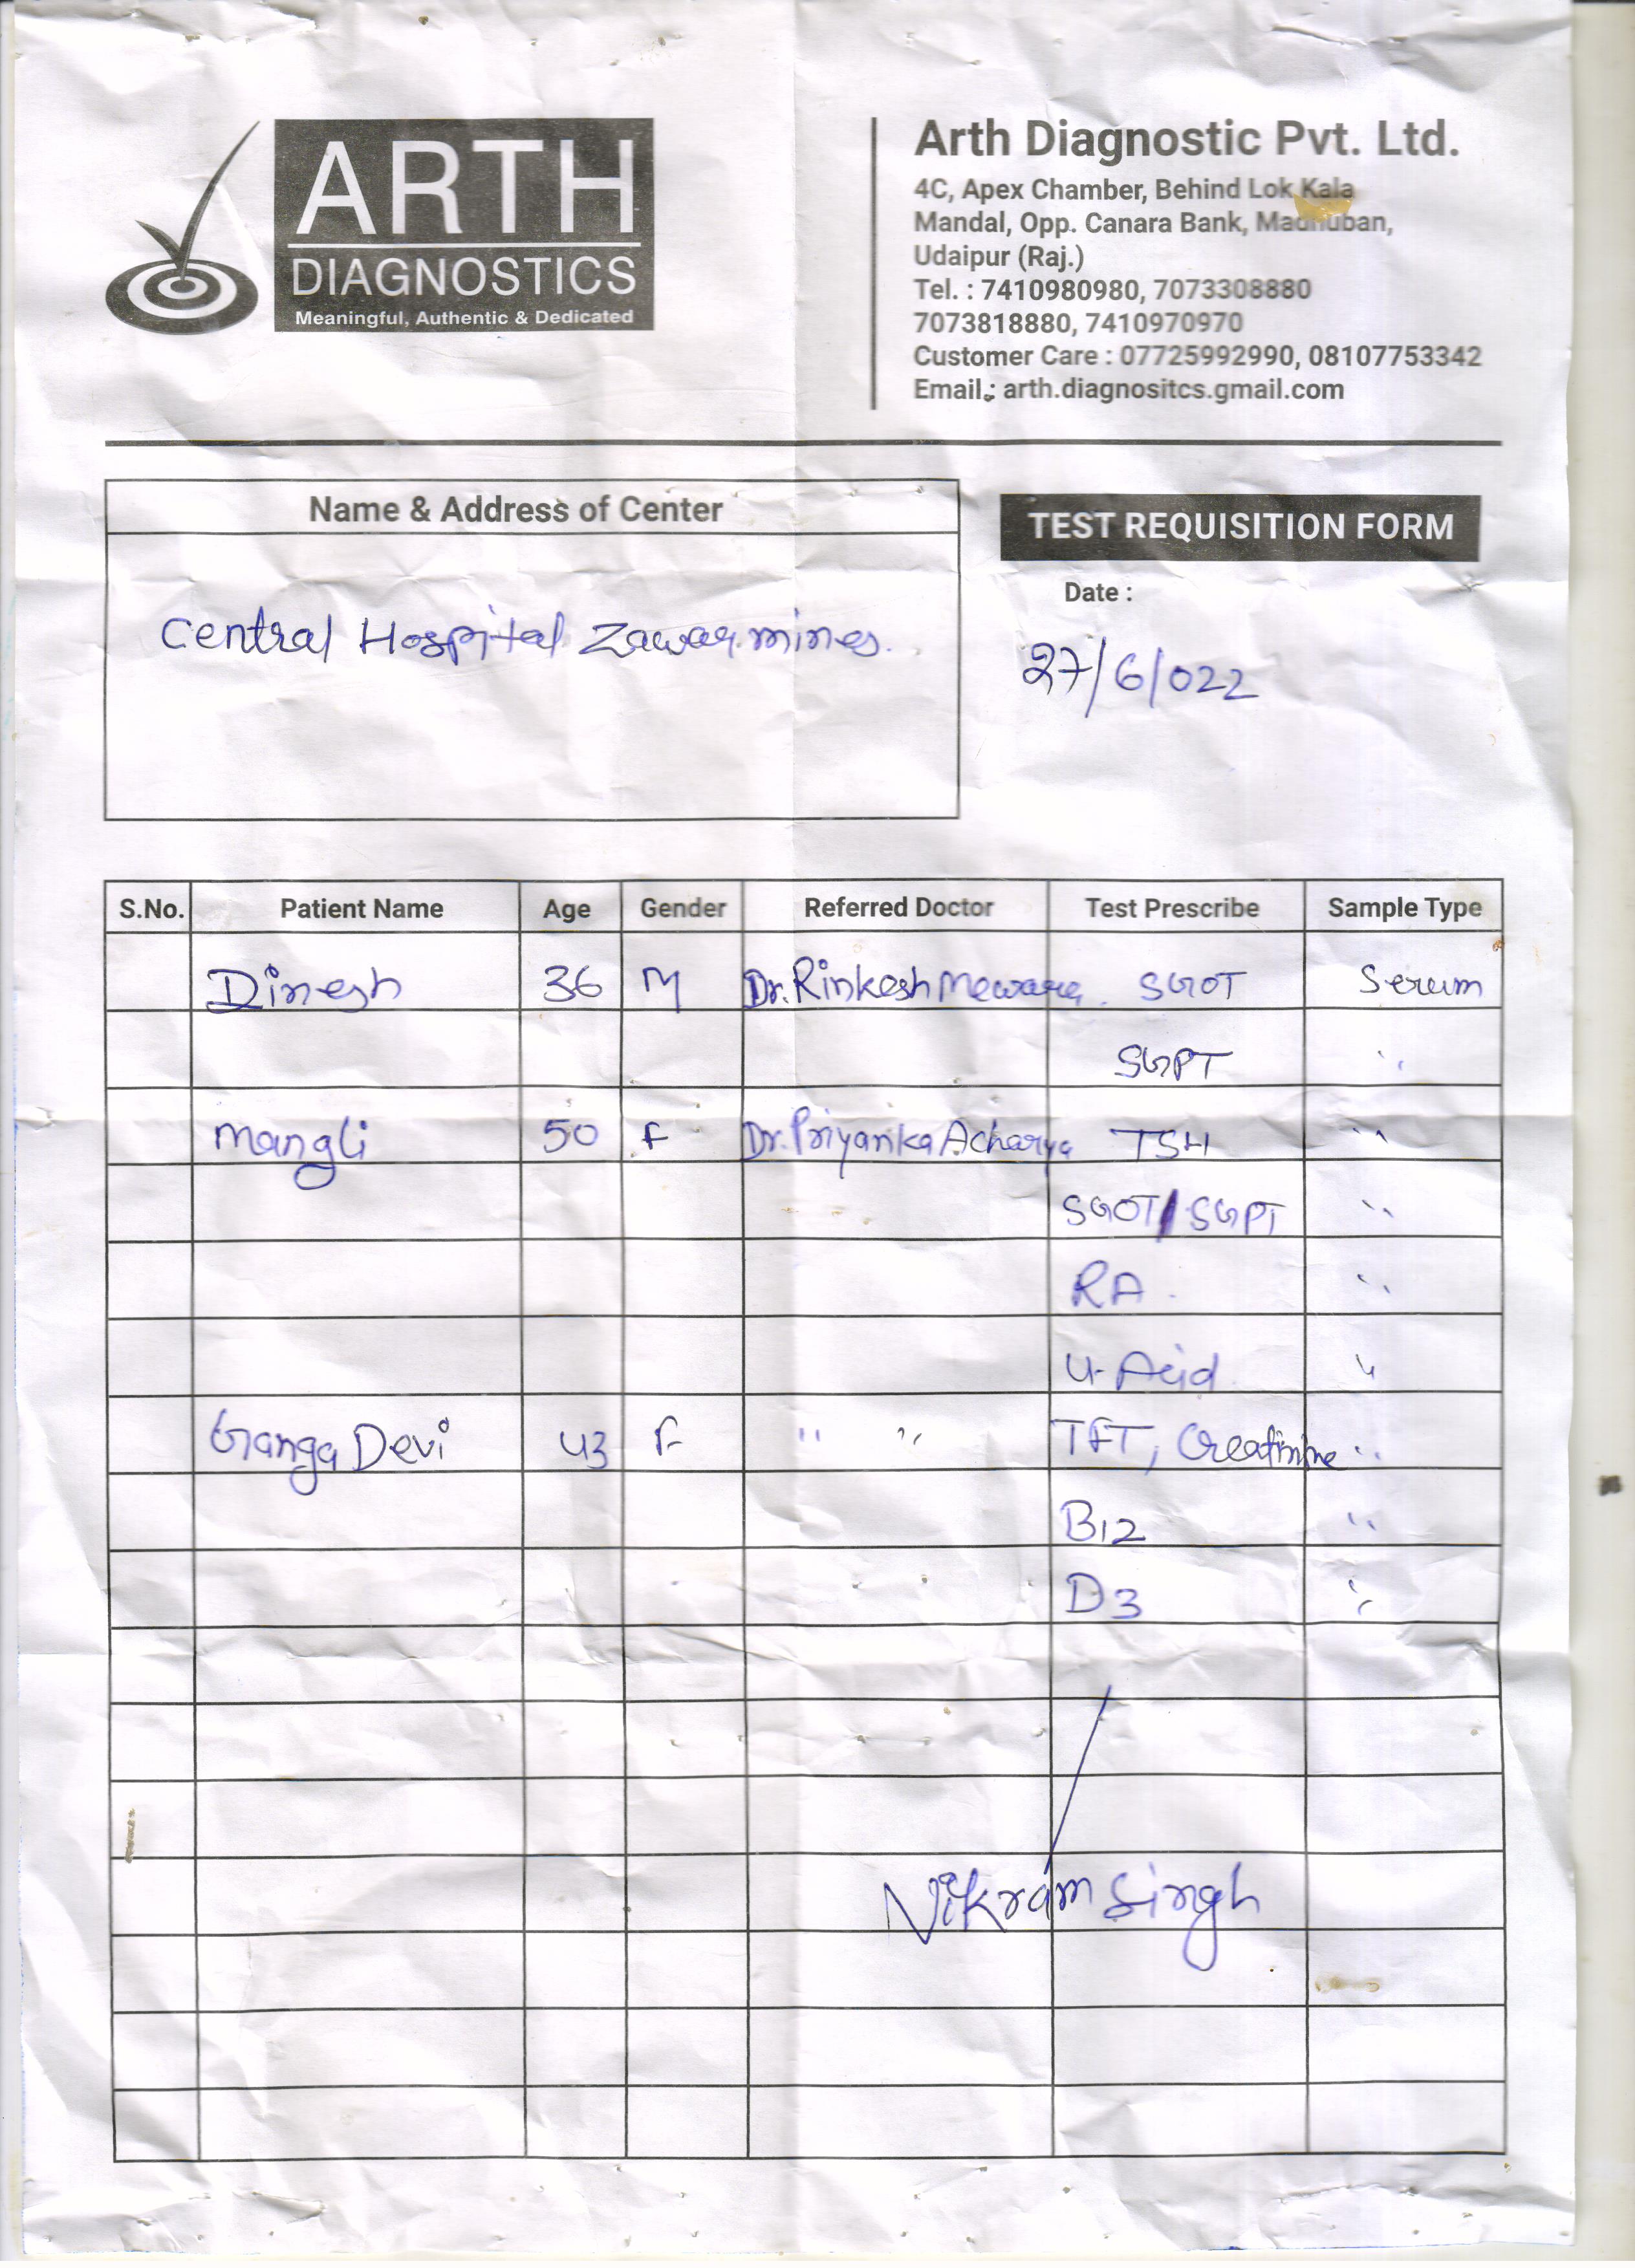 ARTH
DIAGNOSTICS
Meaningful, Authentic & Dedicated
Arth Diagnostic Pvt. Ltd.
4C, Apex Chamber, Behind Lok Kala
Mandal, Opp. Canara Bank, Madhuban,
Udaipur (Raj.)
Tel. : 7410980980, 7073308880
7073818880, 7410970970
Customer Care : 07725992990, 08107753342
Email : arth.diagnositcs.gmail.com
Name & Address of Center
TEST REQUISITION FORM
Date :
Central Hospital Zawar mines.
27/6/022
S.No. Patient Name Age Gender Referred Doctor Test Prescribe Sample Type
Dinesh 36 M Dr. Rinkesh Mewara. SGOT Serum
SGPT "
Mangli 50 F Dr. Priyanka Acharya TSH "
SGOT/SGPT "
RA. "
U-Acid "
Ganga Devi 43 F " " TFT, Creatinine "
B12 "
D3 "
Vikram Singh